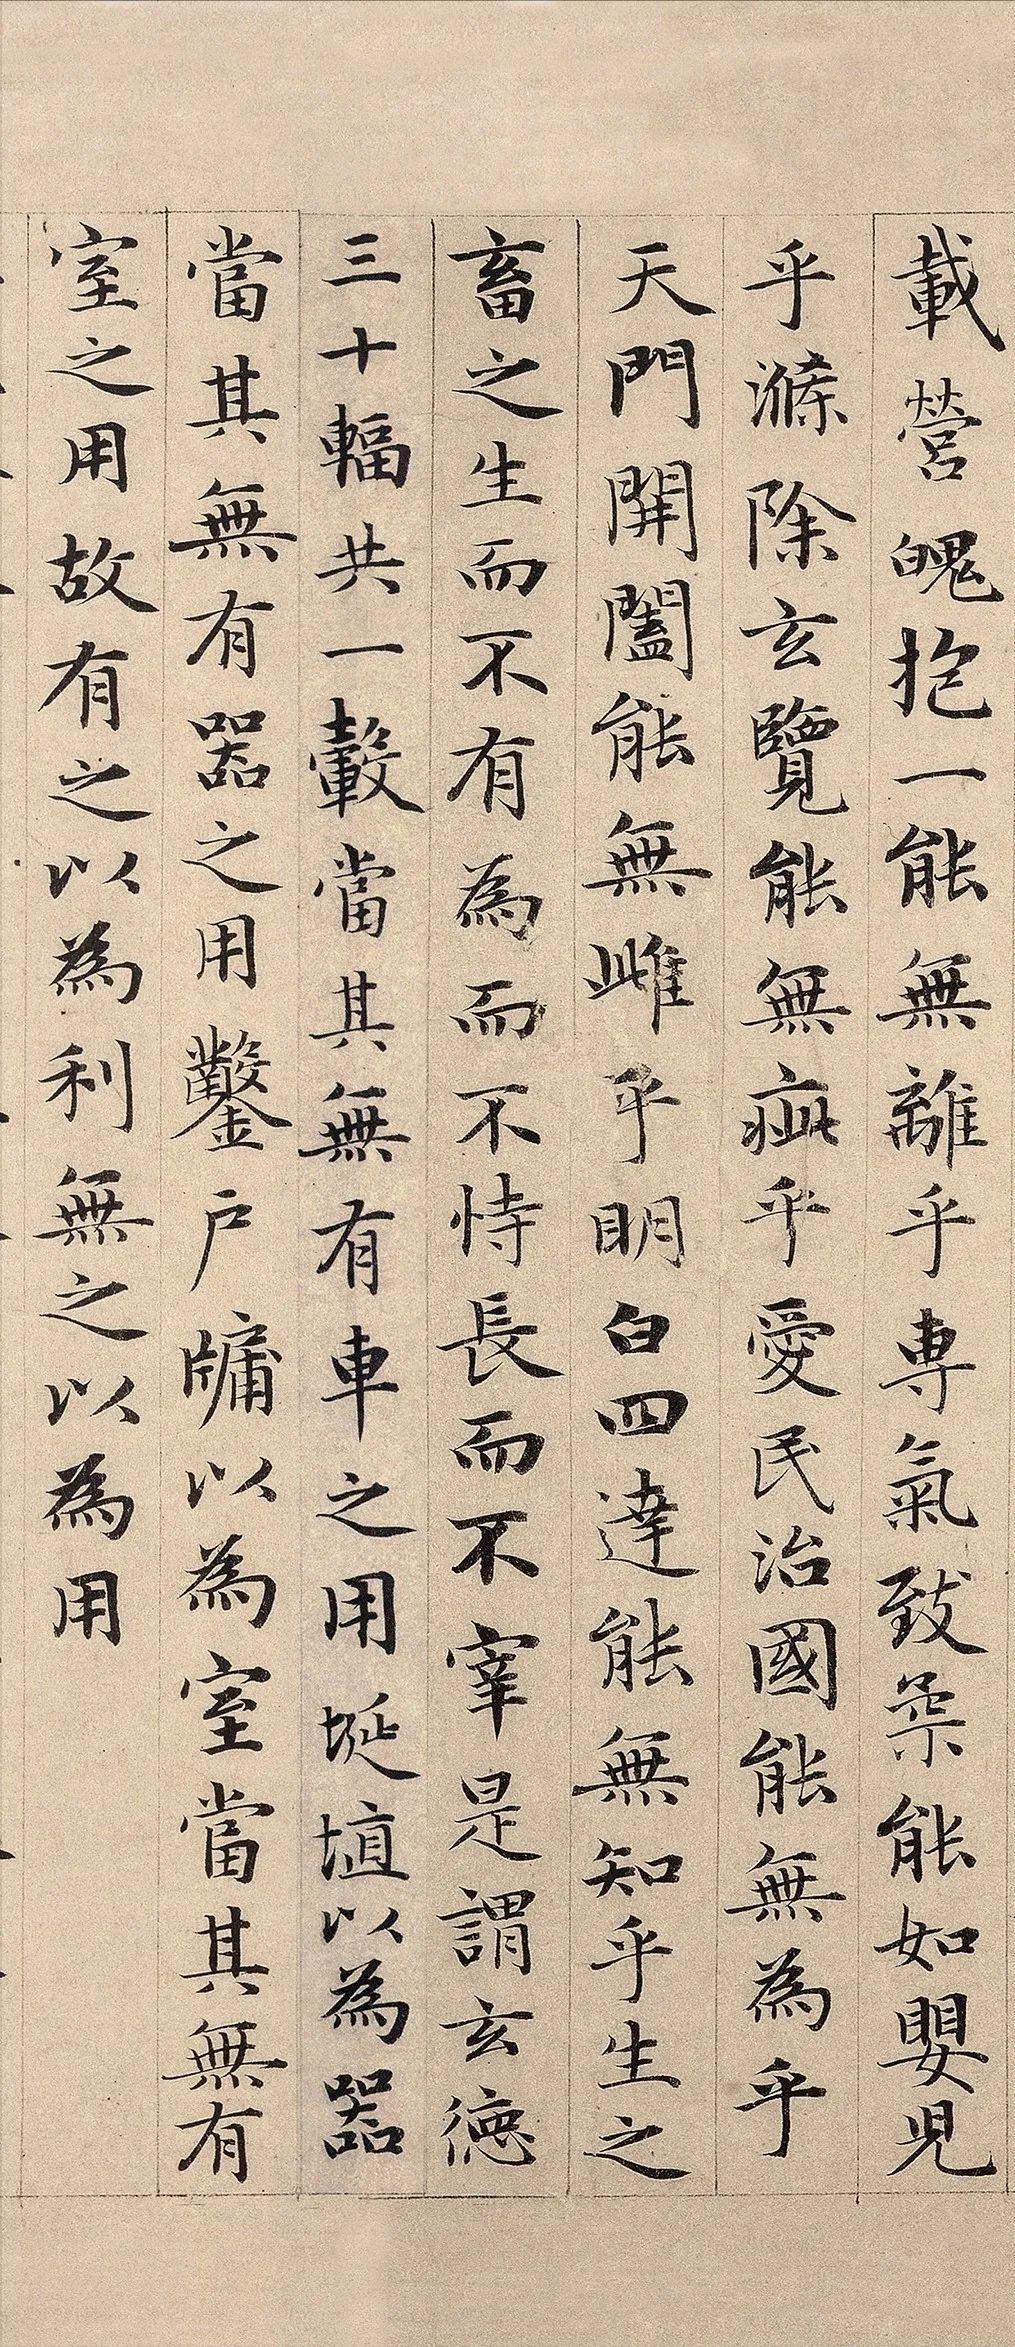 載營魄抱一能無離乎專氣致柔能如嬰兒
乎滌除玄覽能無疵乎愛民治國能無為乎
天門開闔能無雌乎明白四達能無知乎生之
畜之生而不有為而不恃長而不宰是謂玄德
三十輻共一轂當其無有車之用埏埴以為器
當其無有器之用鑿戶牖以為室當其無有
室之用故有之以為利無之以為用